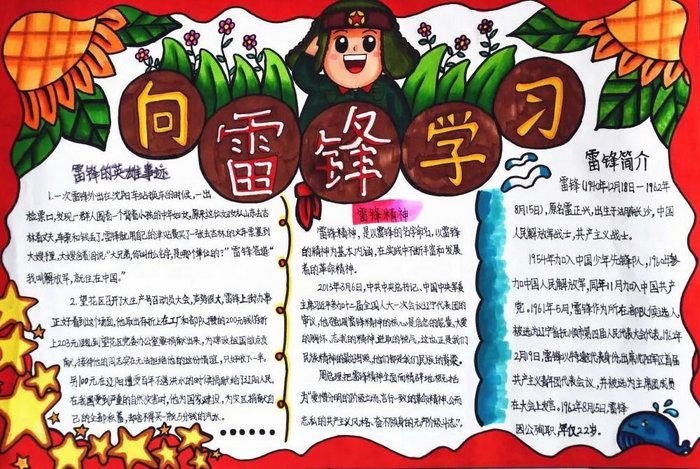 向雷锋学习
雷锋的英雄事迹
1.一次雷锋外出在沈阳车站换车的时候,一出
检票口,发现一群人围着一个背着小孩的中年妇女,原来这位妇女从山东去吉
林看丈夫,车票和钱丢了,雷锋就用自己的津贴费买了一张去吉林的火车票塞到
大嫂手里,大嫂含着泪说:“大兄弟,你叫什么名字,是哪个单位的?”雷锋答道“
我叫解放军,就住在中国。”
2.望花区召开大生产号召动员大会,声势很大,雷锋上街办事
正好看到这个场面,他取出存折上在工厂和部队攒的200元钱
上203元,跑到望花区党委办公室要捐献出来,为建设祖国做点贡
献,接待他的同志实在无法拒绝他的这份情谊,只好收下一半。
另100元在辽阳遭受百年不遇洪水的时候捐献给了辽阳人民
在我国受到严重的自然灾害,他为国家建设,为灾区捐献出自
己的全部积蓄,却舍不得买一瓶
雷锋精神
雷锋精神,是以雷锋的名字命名,以雷锋
的精神为基本内涵,在实践中不断丰富和发展
着的革命精神。
2013年3月6日,中共中央总书记、中国中央军委
主席习近平参加十二届全国人大一次会议辽宁代表团的
审议,他强调雷锋精神的核心是信念的能量、大爱
的胸怀、忘我的精神、进取的锐气,这也正是我们
民族精神的最好写照,他们都是我们民族的脊梁。
周总理把雷锋精神全面而精辟地概括
为“爱憎分明的阶级立场,言行一致的革命精神,公而
忘私的共产主义风格,奋不顾身的无产阶级斗志”。
雷锋简介
雷锋(1940年12月18日-1962年
8月15日),原名雷正兴,出生于湖南长沙,中国
人民解放军战士,共产主义战士。
1954年加入中国少年先锋队,1960年参
加中国人民解放军,同年11月加入中国共产
党。1961年5月,雷锋作为所在部队候选人
被选为辽宁省抚顺市第四届人民代表大会代表。1962年
2月19日,雷锋以特邀代表身份出席沈阳军区首届
共产主义青年团代表会议,并被选为主席团成员
在大会上发言。1962年8月15日,雷锋
因公殉职,年仅22岁。